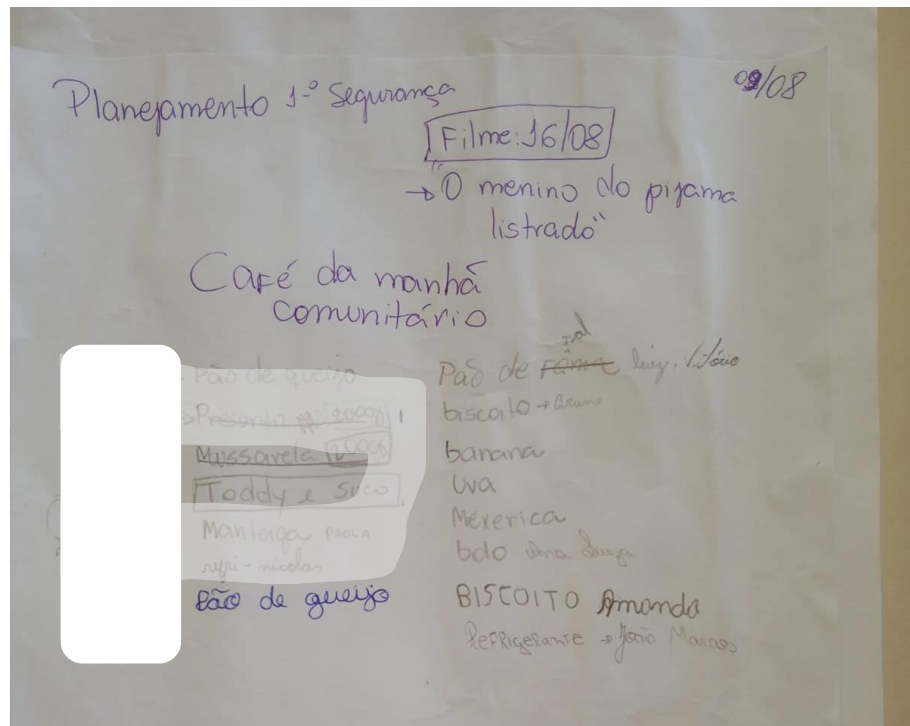 Planejamento 1º Segurança
09/08
Filme: 16/08
→ "O menino do pijama
listrado"
Café da manhã
comunitário
Pão de queijo
Presunto 2000g
Mussarela 2000g
Toddy e Suco
Manteiga PAOLA
refri - nicolas
Pão de queijo
sal
Pão de forma luiz,
biscoito → Bruna
banana
Uva
Mexerica
bolo
BISCOITO Amanda
Refrigerante → João